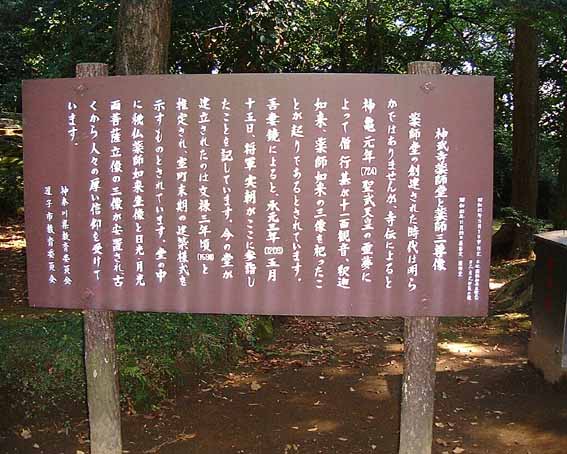 神武寺薬師堂と薬師三尊像
薬師堂の創建された時代は明ら
かではありませんが、寺伝によると
神亀元年(724)聖武天皇の霊夢に
よって僧行基が十一面観音、釈迦
如来、薬師如来の三像を祀ったこ
とが起りであるとされています。
吾妻鏡によると、承元三年(1209)五月
十五日、将軍実朝がここに参詣し
たことを記しています。今の堂が
建立されたのは文禄三年頃(1594)と
推定され、室町末期の建築様式を
示すものとされています。堂の中
に秘仏薬師如来坐像と日光月光
両菩薩立像の三像が安置され古
くから人々の厚い信仰を受けて
います。
神奈川県教育委員会
逗子市教育委員会